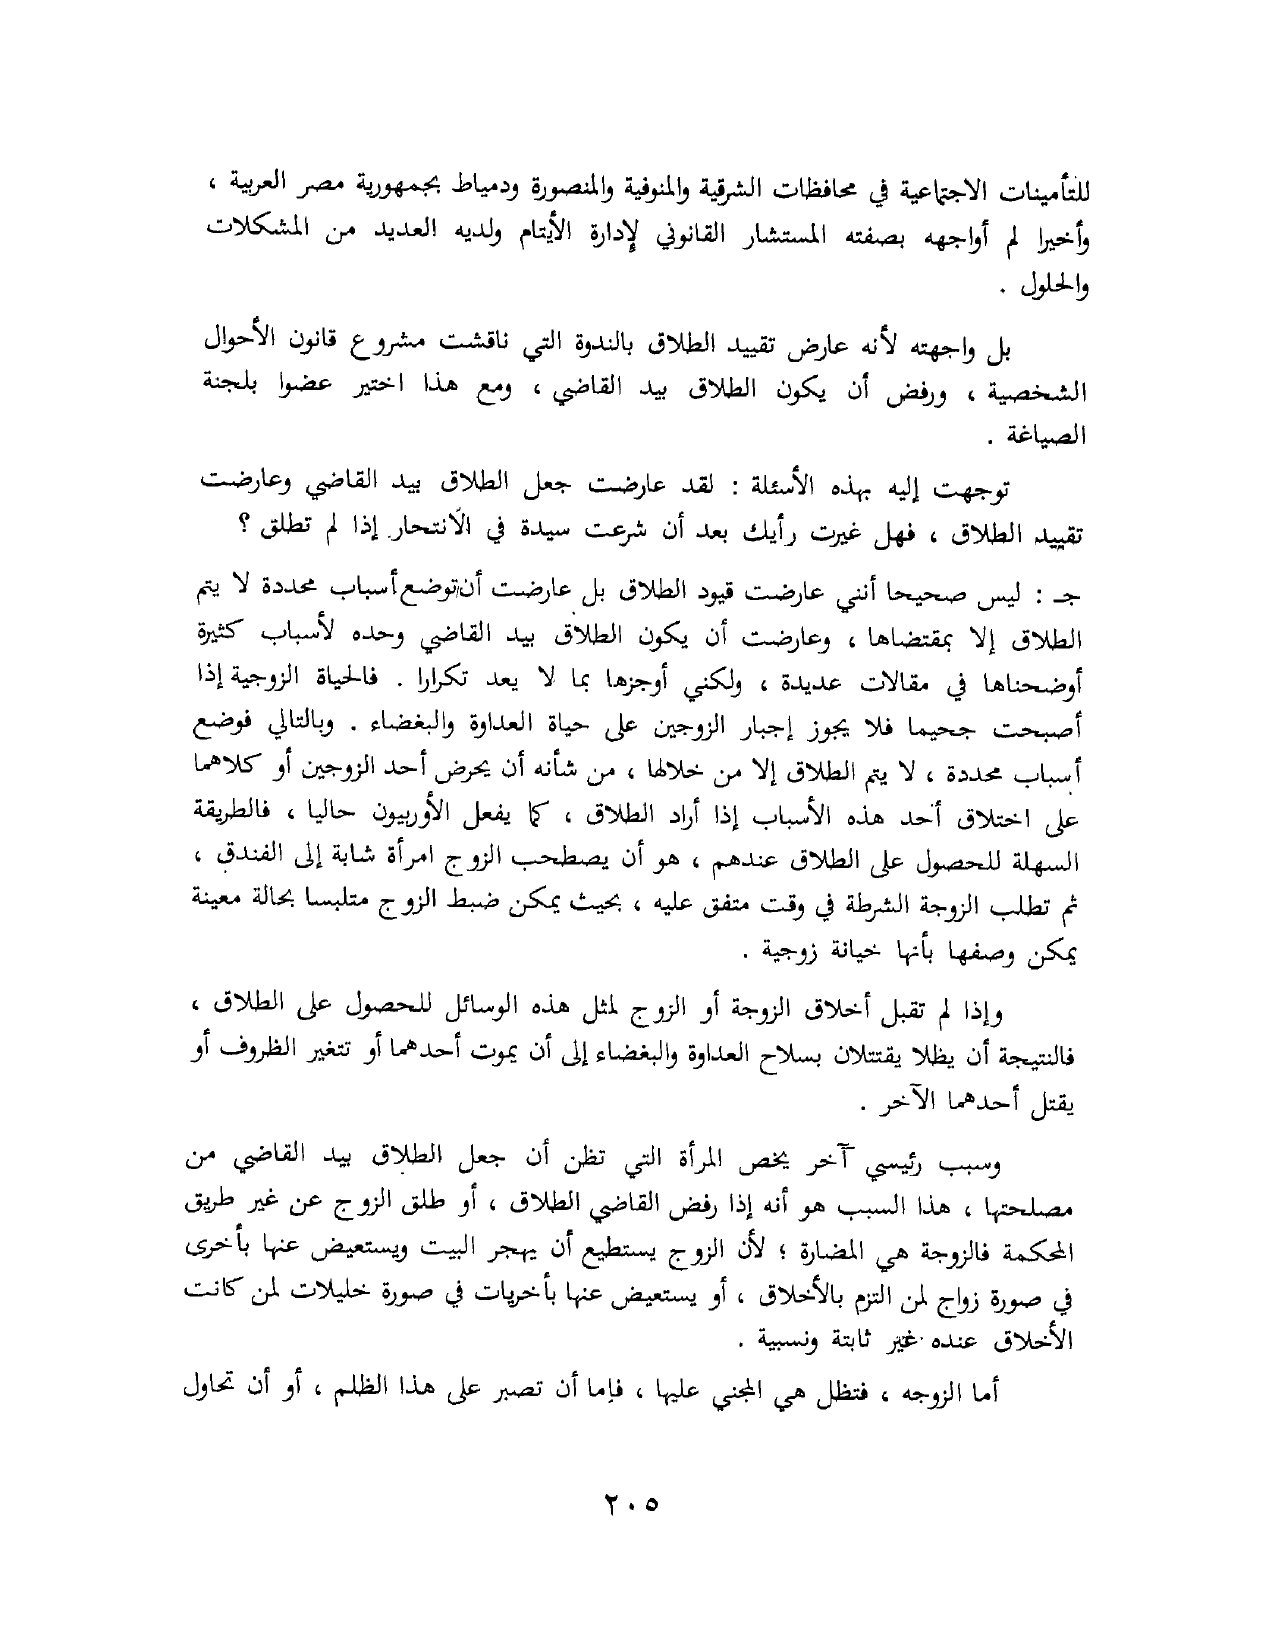 للتأمينات الاجتماعية في محافظات الشرقية والمنوفية والمنصورة ودمياط بجمهورية مصر العربية ،
وأخيرا لم أواجهه بصفته المستشار القانوني لإدارة الأيتام ولديه العديد من المشكلات
والحلول .
بل واجهته لأنه عارض تقييد الطلاق بالندوة التي ناقشت مشروع قانون الأحوال
الشخصية ، ورفض أن يكون الطلاق بيد القاضي ، ومع هذا اختير عضوا بلجنة
الصياغة .
توجهت إليه بهذه الأسئلة : لقد عارضت جعل الطلاق بيد القاضي وعارضت
تقييد الطلاق ، فهل غيرت رأيك بعد أن شرعت سيدة في الانتحار إذا لم تطلق ؟
جـ : ليس صحيحا أنني عارضت قيود الطلاق بل عارضت أن توضع أسباب محددة لا يتم
الطلاق إلا بمقتضاها ، وعارضت أن يكون الطلاق بيد القاضي وحده لأسباب كثيرة
أوضحناها في مقالات عديدة ، ولكني أوجزها بما لا يعد تكرارا . فالحياة الزوجية إذا
أصبحت جحيما فلا يجوز إجبار الزوجين على حياة العداوة والبغضاء . وبالتالي فوضع
أسباب محددة ، لا يتم الطلاق إلا من خلالها ، من شأنه أن يحرض أحد الزوجين أو كلاهما
على اختلاق أحد هذه الأسباب إذا أراد الطلاق ، كما يفعل الأوربيون حاليا ، فالطريقة
السهلة للحصول على الطلاق عندهم ، هو أن يصطحب الزوج امرأة شابة إلى الفندق ،
ثم تطلب الزوجة الشرطة في وقت متفق عليه ، بحيث يمكن ضبط الزوج متلبسا بحالة معينة
يمكن وصفها بأنها خيانة زوجية .
وإذا لم تقبل أخلاق الزوجة أو الزوج لمثل هذه الوسائل للحصول على الطلاق ،
فالنتيجة أن يظلا يقتتلان بسلاح العداوة والبغضاء إلى أن يموت أحدهما أو تتغير الظروف أو
يقتل أحدهما الآخر .
وسبب رئيسي آخر يخص المرأة التي تظن أن جعل الطلاق بيد القاضي من
مصلحتها ، هذا السبب هو أنه إذا رفض القاضي الطلاق ، أو طلق الزوج عن غير طريق
المحكمة فالزوجة هي المضارة ؛ لأن الزوج يستطيع أن يهجر البيت ويستعيض عنها بأخرى
في صورة زواج لمن التزم بالأخلاق ، أو يستعيض عنها بأخريات في صورة خليلات لمن كانت
الأخلاق عنده غير ثابتة ونسبية .
أما الزوجه ، فتظل هي المجني عليها ، فإما أن تصبر على هذا الظلم ، أو أن تحاول
٢٠٥